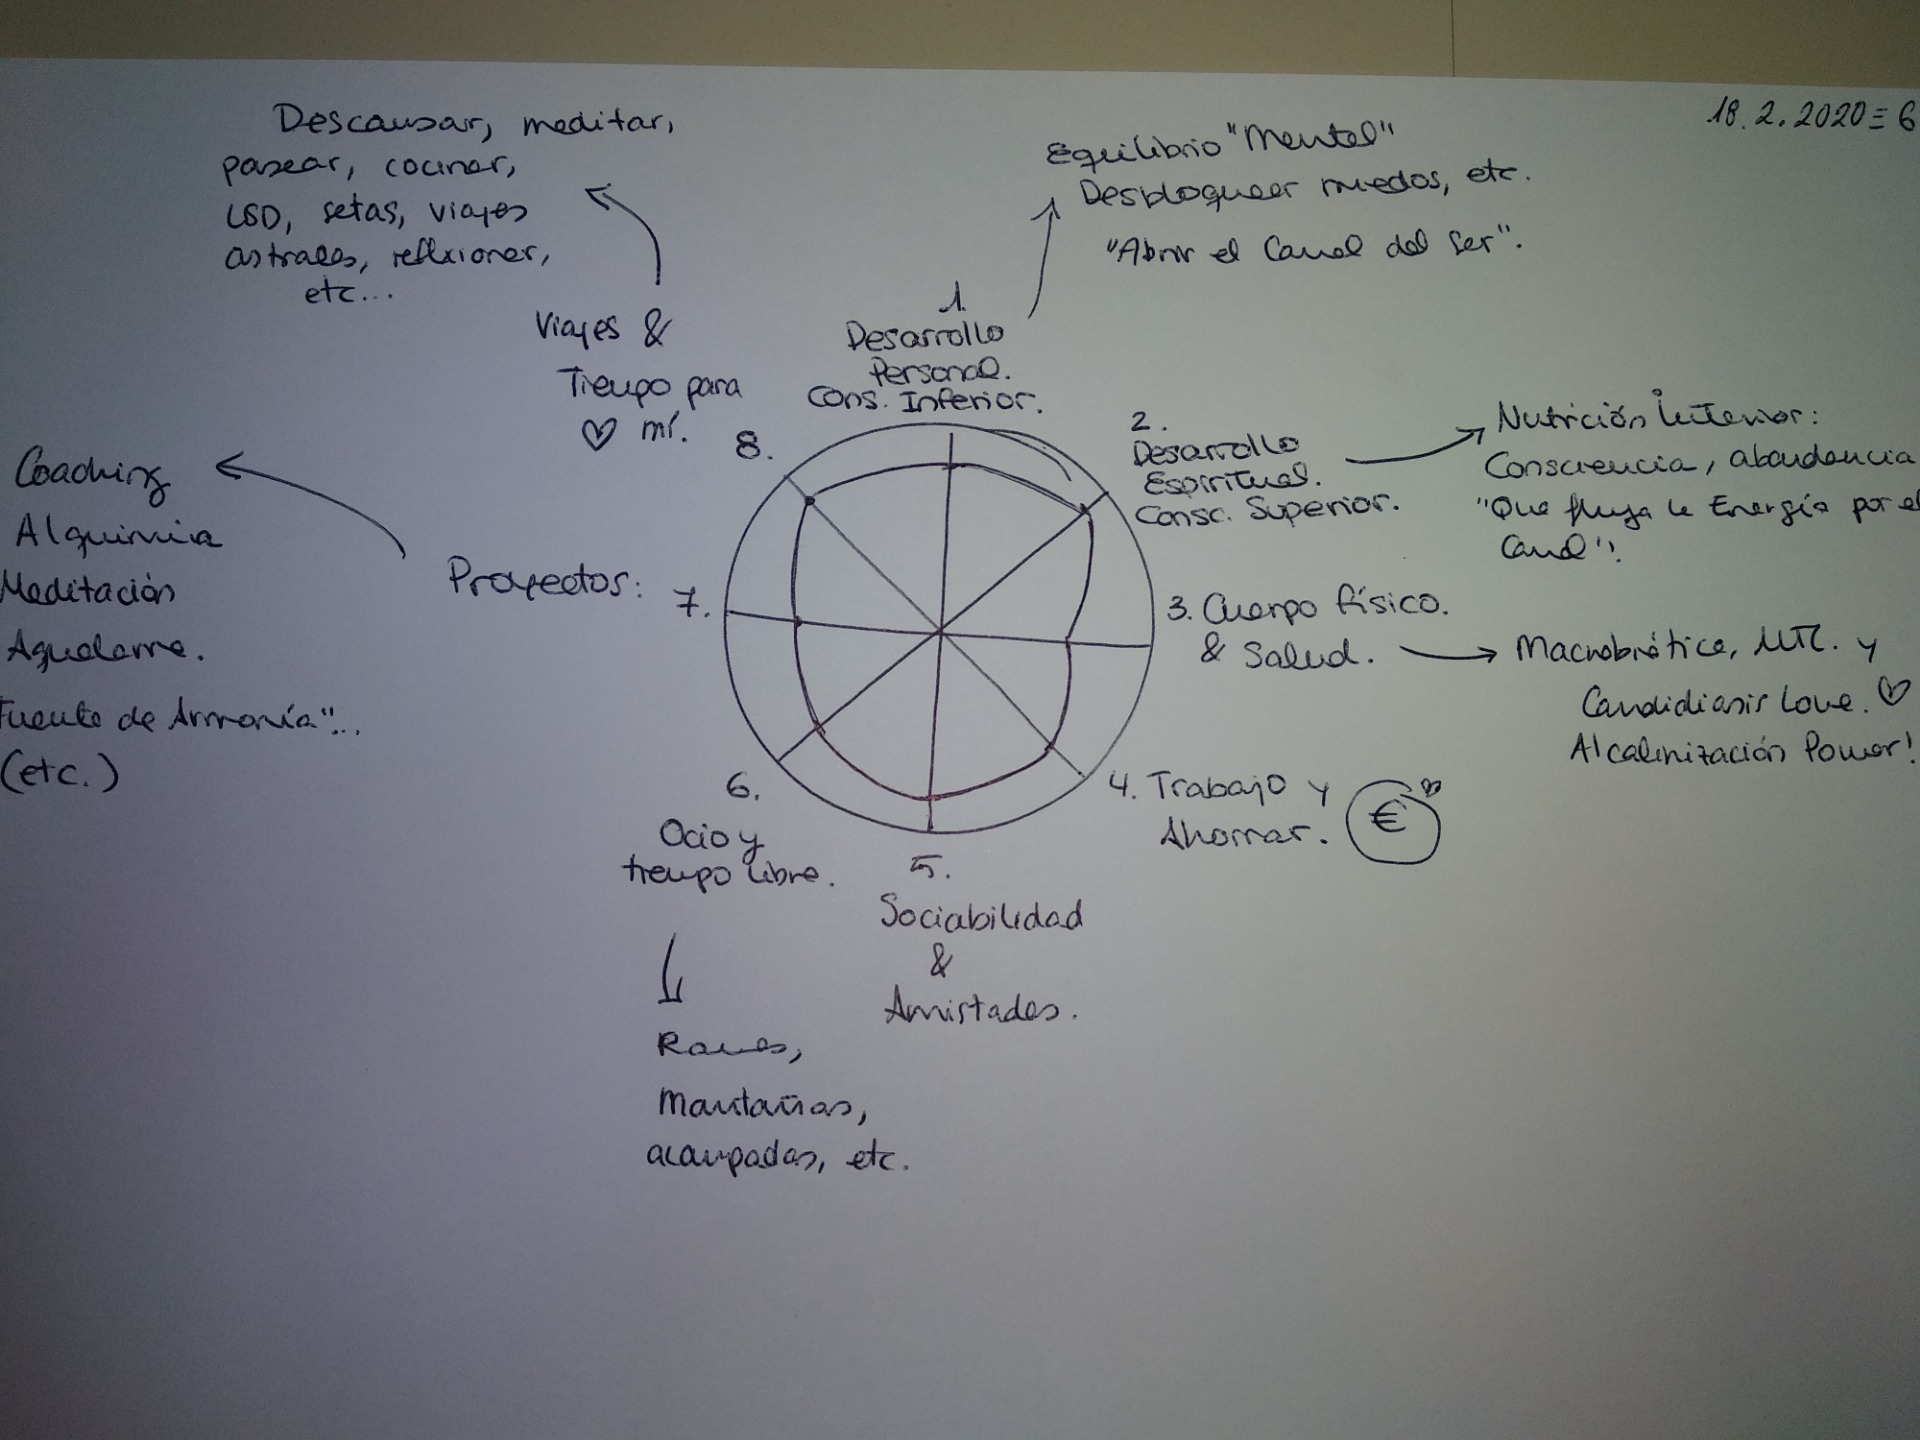 18.2.2020 ≡ 6
Descansar, meditar,
pasear, cocinar,
LSD, setas, viajes
astrales, reflexionar,
etc...
Equilibrio "Mental"
Desbloquear miedos, etc.
"Abrir el Canal del Ser".
1.
Desarrollo
Personal.
Cons. Inferior.
2.
Desarrollo
Espiritual.
Consc. Superior.
Nutrición Interior:
Consciencia, abundancia
"Que fluya la Energía por el
Canal".
3. Cuerpo físico.
& Salud.
Macrobiótica, MTC. y
Candidiasis Love. ♡
Alcalinización Power!
4. Trabajo y
Ahorrar. €
5.
Sociabilidad
&
Amistades.
6.
Ocio y
tiempo libre.
Raves,
Montañas,
acampadas, etc.
7.
Proyectos:
Coaching
Alquimia
Meditación
Aquelarre.
Fuente de Armonía"...
(etc.)
8.
Viajes &
Tiempo para
♡ mí.